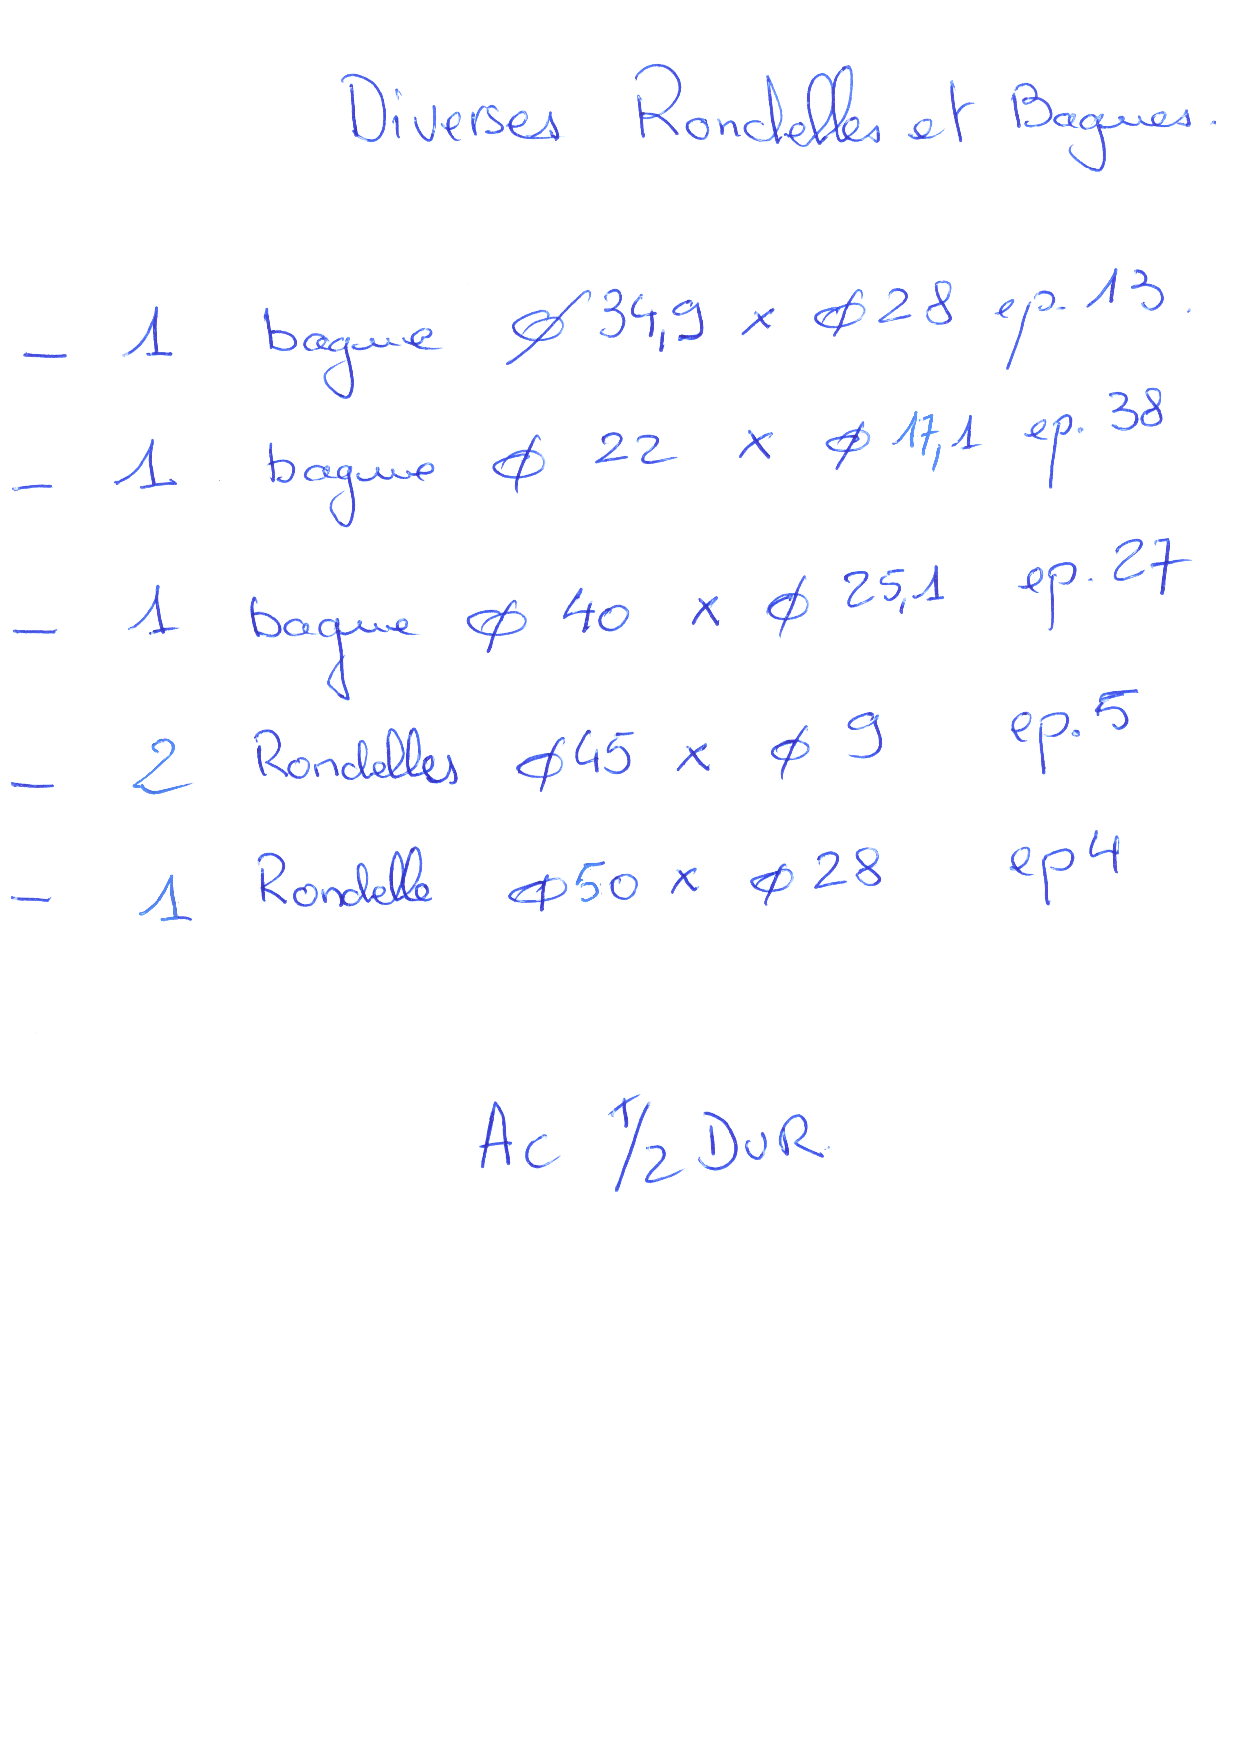 Diverses Rondelles et Bagues.
- 1 bague ϕ 34,9 x ϕ 28 ep. 13.
- 1 bague ϕ 22 x ϕ 17,1 ep. 38
- 1 bague ϕ 40 x ϕ 25,1 ep. 27
- 2 Rondelles ϕ 45 x ϕ 9 ep. 5
- 1 Rondelle ϕ 50 x ϕ 28 ep 4
Ac 1/2 DUR